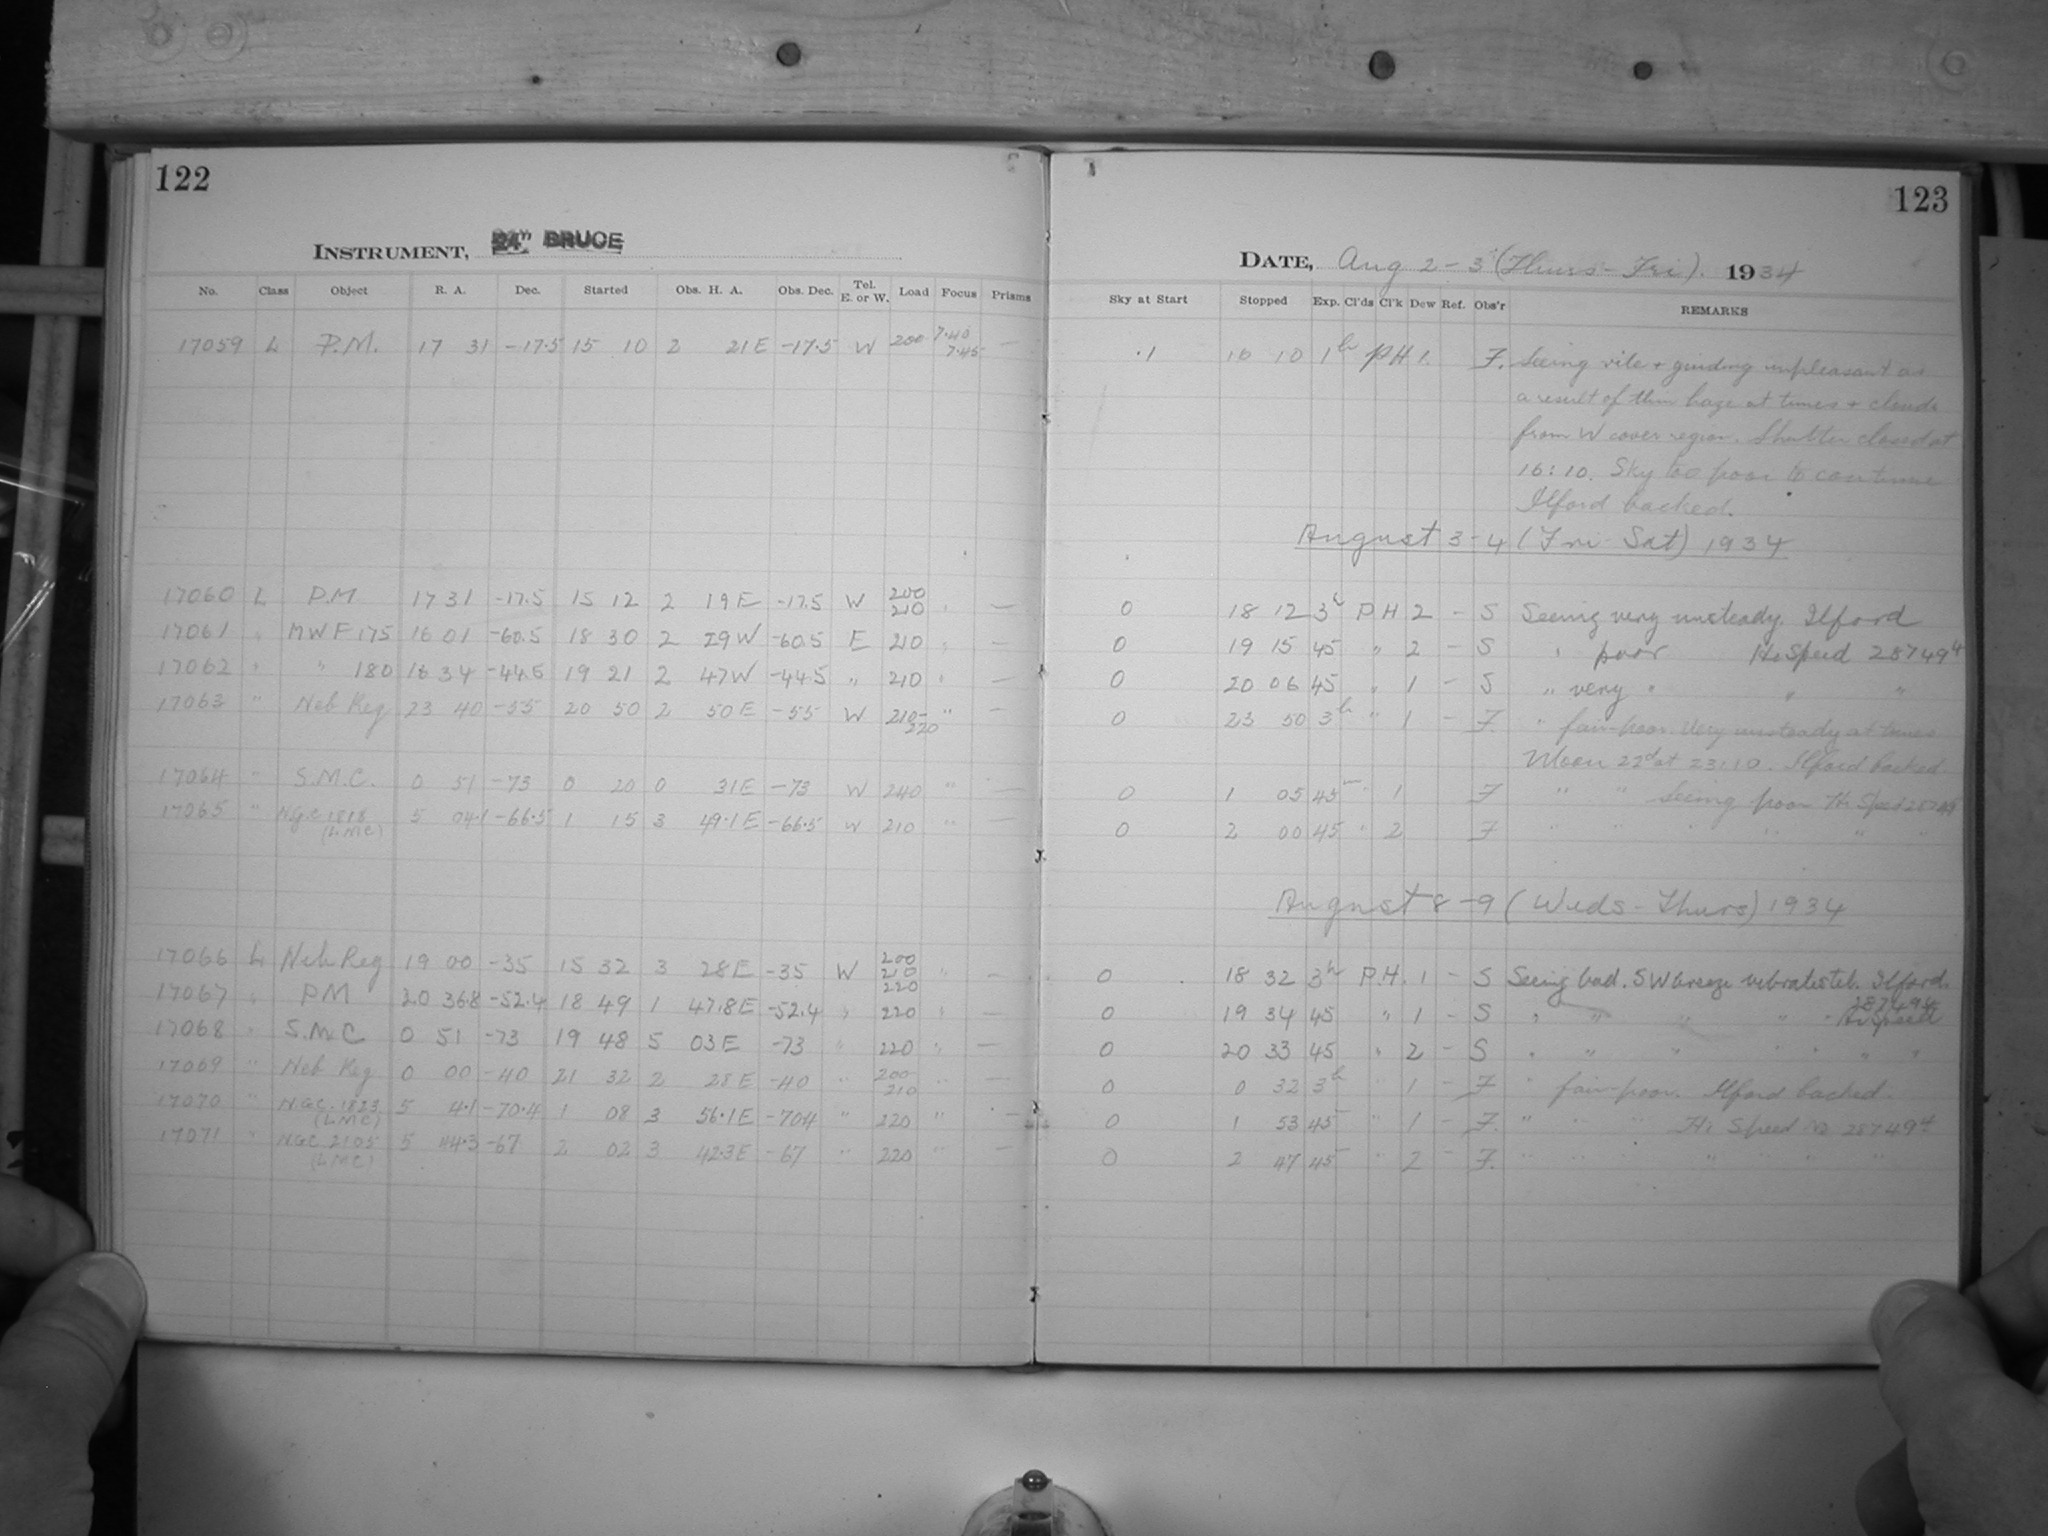 122
INSTRUMENT, 24" BRUCE
No. Class Object R. A. Dec. Started Obs. H. A. Obs. Dec. Tel. E. or W. Load Focus Prisms
17059 L P.M. 17 31 -17.5 15 10 2 21E -17.5 W 200 7.40 7.45 —
17060 L P.M 17 31 -17.5 15 12 2 19E -17.5 W 200 210 " —
17061 " MWF 175 16 01 -60.5 18 30 2 29W -60.5 E 210 " —
17062 " " 180 16 34 -44.5 19 21 2 47W -44.5 " 210 " —
17063 " Neb Reg 23 40 -55 20 50 2 50E -55 W 210- 220 " —
17064 " S.M.C. 0 51 -73 0 20 0 31E -73 W 240 " —
17065 " N.G.C. 1818 (LMC) 5 04.1 -66.5 1 15 3 49.1E -66.5 W 210 " —
17066 L Neb Reg 19 00 -35 15 32 3 28E -35 W 200 210 220 " —
17067 " PM 20 36.8 -52.4 18 49 1 47.8E -52.4 " 220 " —
17068 " S.M.C 0 51 -73 19 48 5 03E -73 " 220 " —
17069 " Neb Reg 0 00 -40 21 32 2 28E -40 " 200- 210 " —
17070 " N.G.C. 1823 (LMC) 5 4.1 -70.4 1 08 3 56.1E -70.4 " 220 " —
17071 " N.G.C 2105 (LMC) 5 44.3 -67 2 02 3 42.3E -67 " 220 " —
123
DATE, Aug 2-3 (Thurs-Fri). 1934
Sky at Start Stopped Exp. Cl'ds Cl'k Dew Ref. Obs'r REMARKS
.1 16 10 1h PH 1. F. Seeing vile + guiding unpleasant as
a result of thin haze at times + clouds
from W cover region. Shutter closed at
16:10. Sky too poor to continue
Ilford backed.
August 3-4 (Fri-Sat) 1934
0 18 12 3h P H 2 - S Seeing very unsteady. Ilford
0 19 15 45 " 2 - S " poor Hi Speed 28749 4
0 20 06 45 " 1 - S " very " " "
0 23 50 3h " 1 - F. " fair-poor. Very unsteady at times
Moon 22d at 23:10. Ilford backed
0 1 05 45 " 1 F " " Seeing poor Hi Speed 28749
0 2 00 45 " 2 F " " " " " "
August 8-9 (Weds-Thurs) 1934
0 18 32 3h P.H. 1 - S Seeing bad. SW breeze vibrates tel. Ilford.
0 19 34 45 " 1 - S " " " " " 28749 4 Hi Speed
0 20 33 45 " 2 - S " " " " " " "
0 0 32 3h " 1 - F " fair-poor. Ilford backed.
0 1 53 45 " 1 - F. " " " Hi Speed No 28749 4
0 2 47 45 " 2 - F. " " " " " "